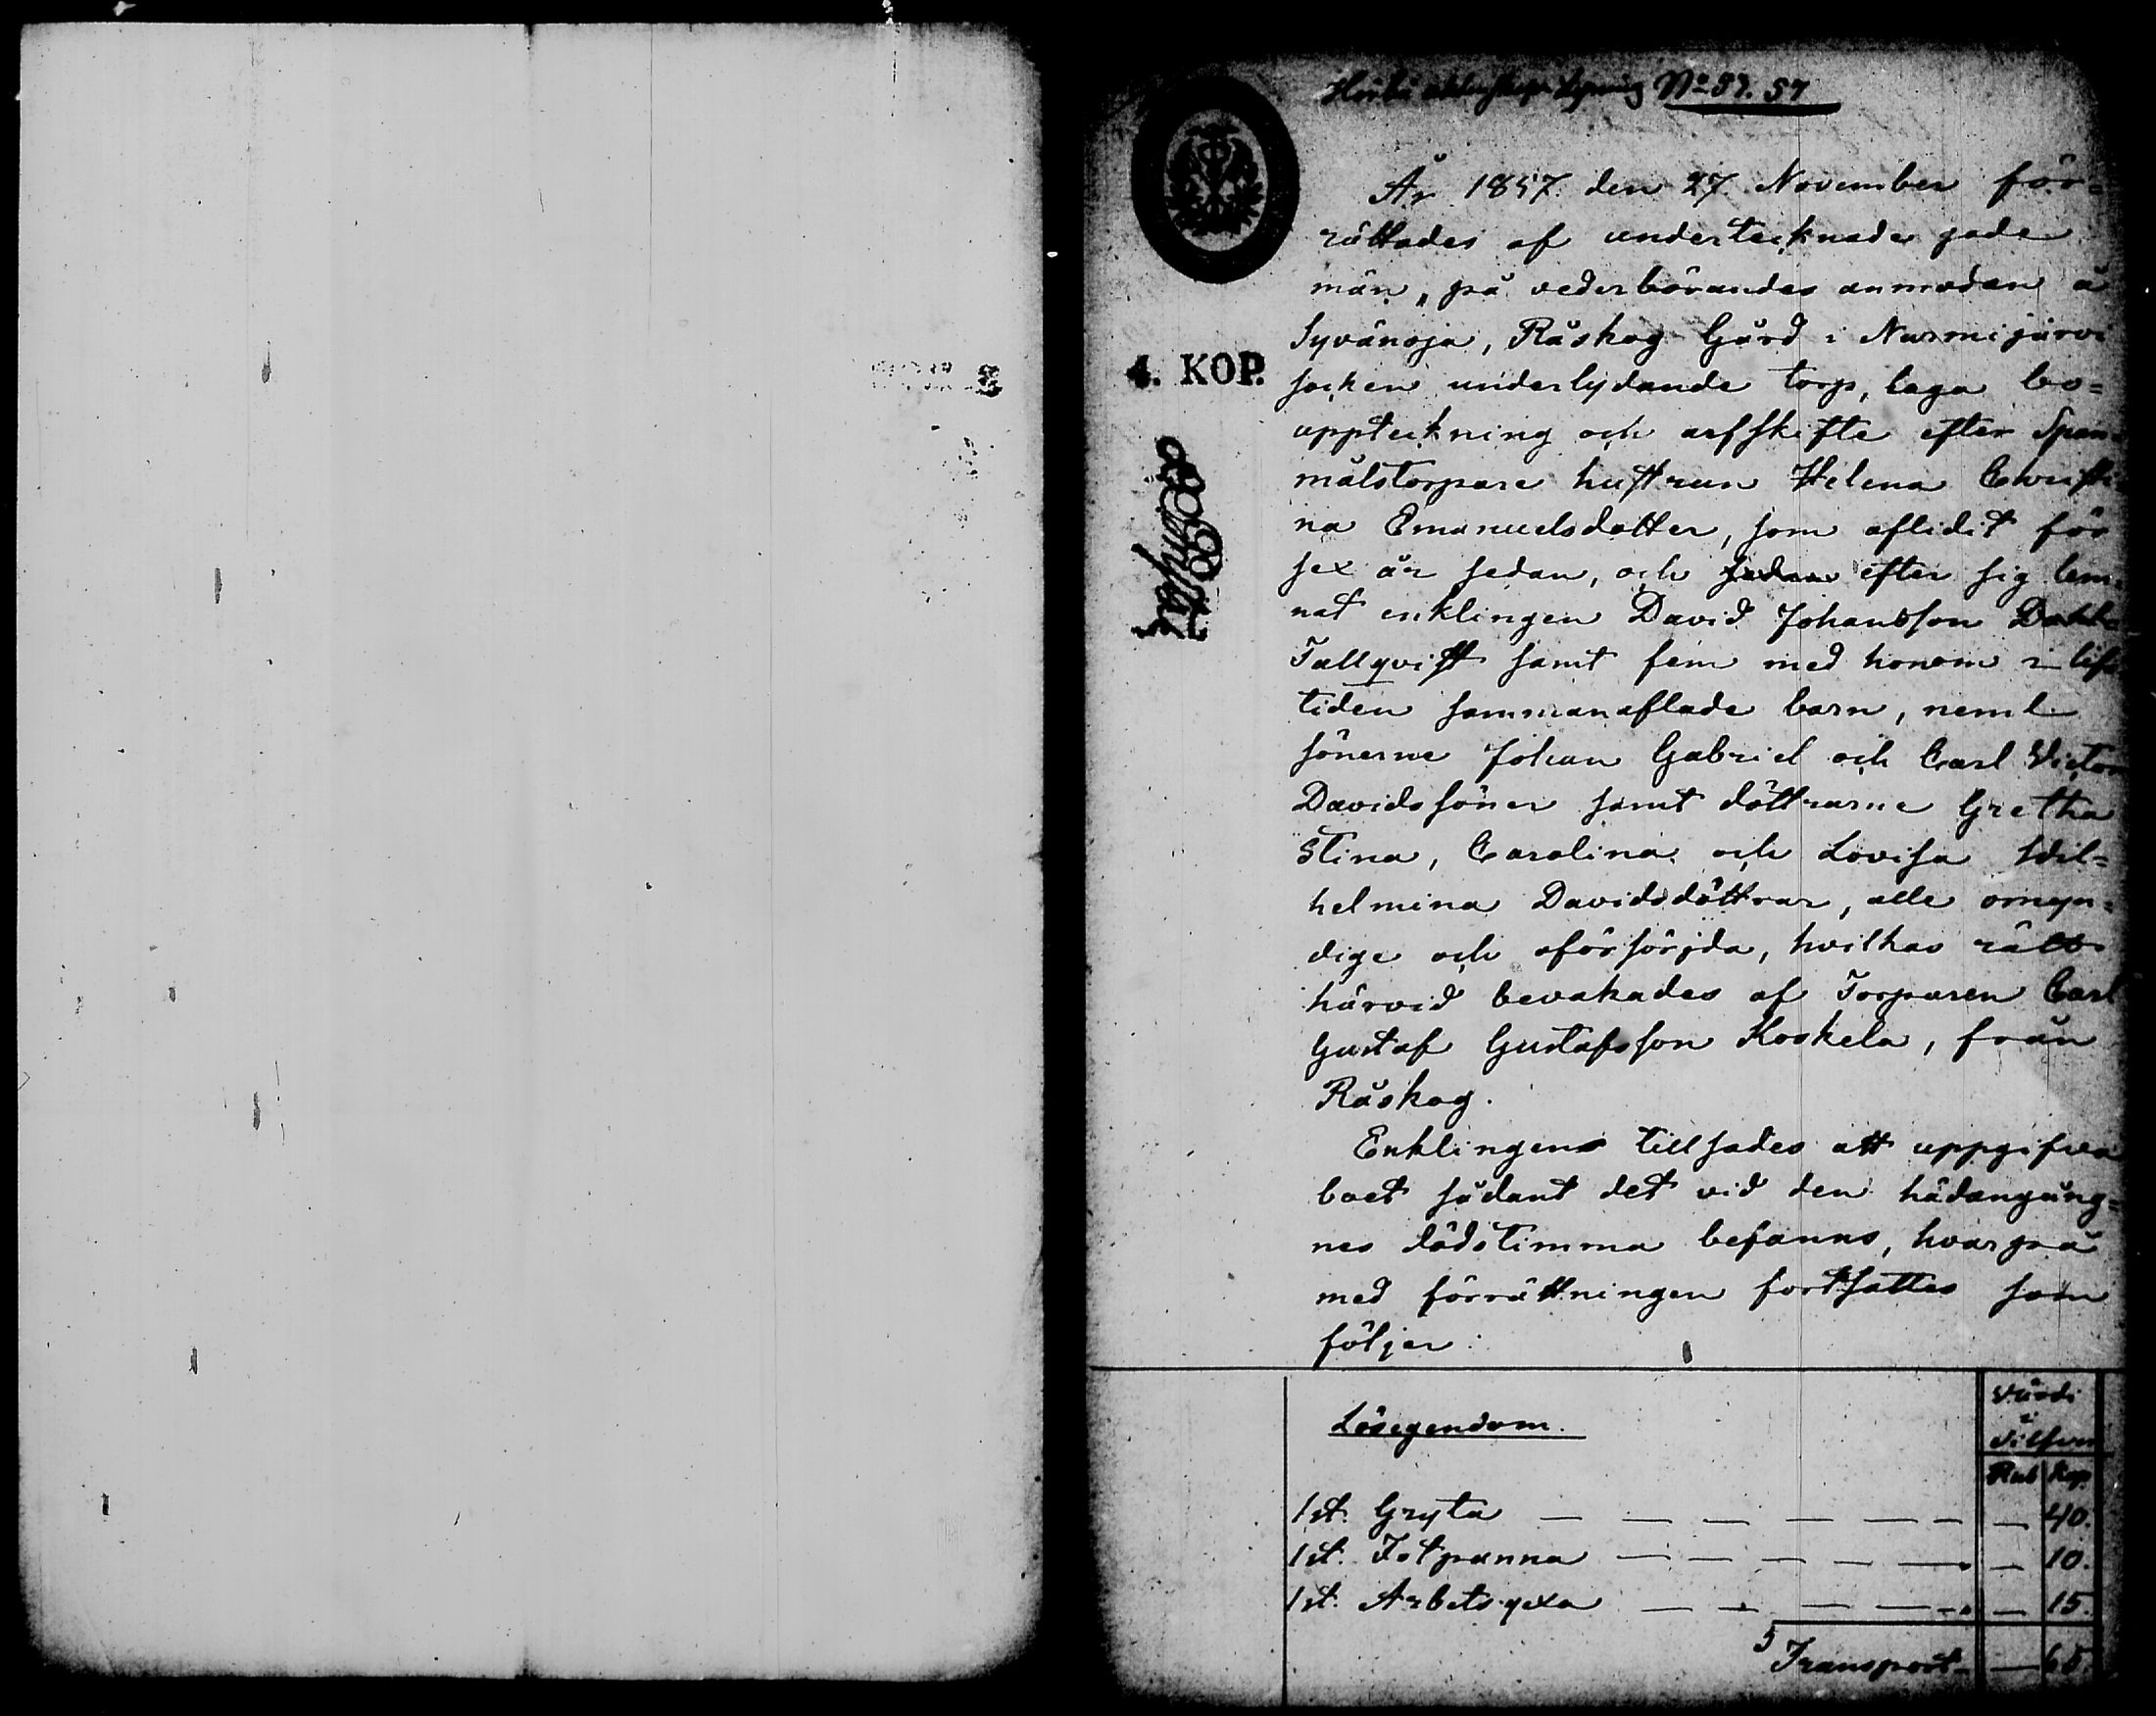 No 57. 57
År 1857 den 27 November för=
rättades af undertecknade gode
män, på vederbörandes anmodan å
Syvänoja, Råskog Gård i Nurmijärvi
4. KOP.
socken underlydande torp, laga bo=
uppteckning och arfskifte efter Span=
målstorpare hustrun Helena Christi
na Emanuelsdotter, som aflidit för
sex år sedan, och sedan efter sig lem=
nat enklingen David Johansson
Tallqvist samt fem med honom i lifs
tiden sammanaflade barn, neml
sönerne Johan Gabriel och Carl Victor
Davidssöner samt döttrarne Gretha
Stina, Carolina och Lovisa Wil=
helmina Davidsdöttrar, alle omyn=
dige och oförsörjda, hvilkas rätt
härvid bevakades af Torparen Carl
Gustaf Gustafsson Koskela, från
Råskog.
Enklingen tillsades att uppgifva
boet sådant det vid den hädangång=
nes dödstimma befanns, hvarpå
med förrättningen fortsattes som
följer:
Lösegendom.
Värde
i
Silfver
Rub Kop.
1 st. Gryta — 40.
1 st. Fotpanna — 10.
1 st. Arbetsyxa — 15.
Transport — 65.